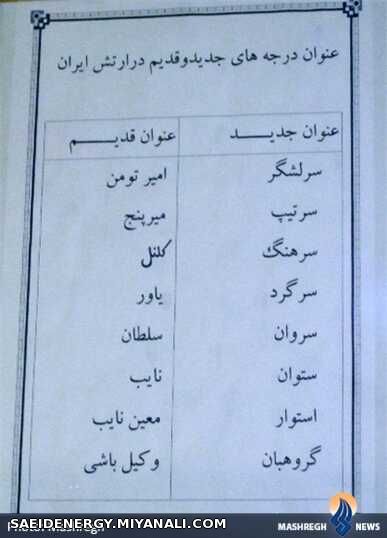 عنوان درجه های جدیدوقدیم درارتش ایران
عنوان جدیـــــد عنوان قدیـــــم
سرلشگر امیر تومن
سرتیپ میرپنج
سرهنگ کلنل
سرگرد یاور
سروان سلطان
ستوان نایب
استوار معین نایب
گروهبان وکیل باشی
SAEIDENERGY.MIYANALI.COM
Photo: Mashregh
MASHREGH NEWS